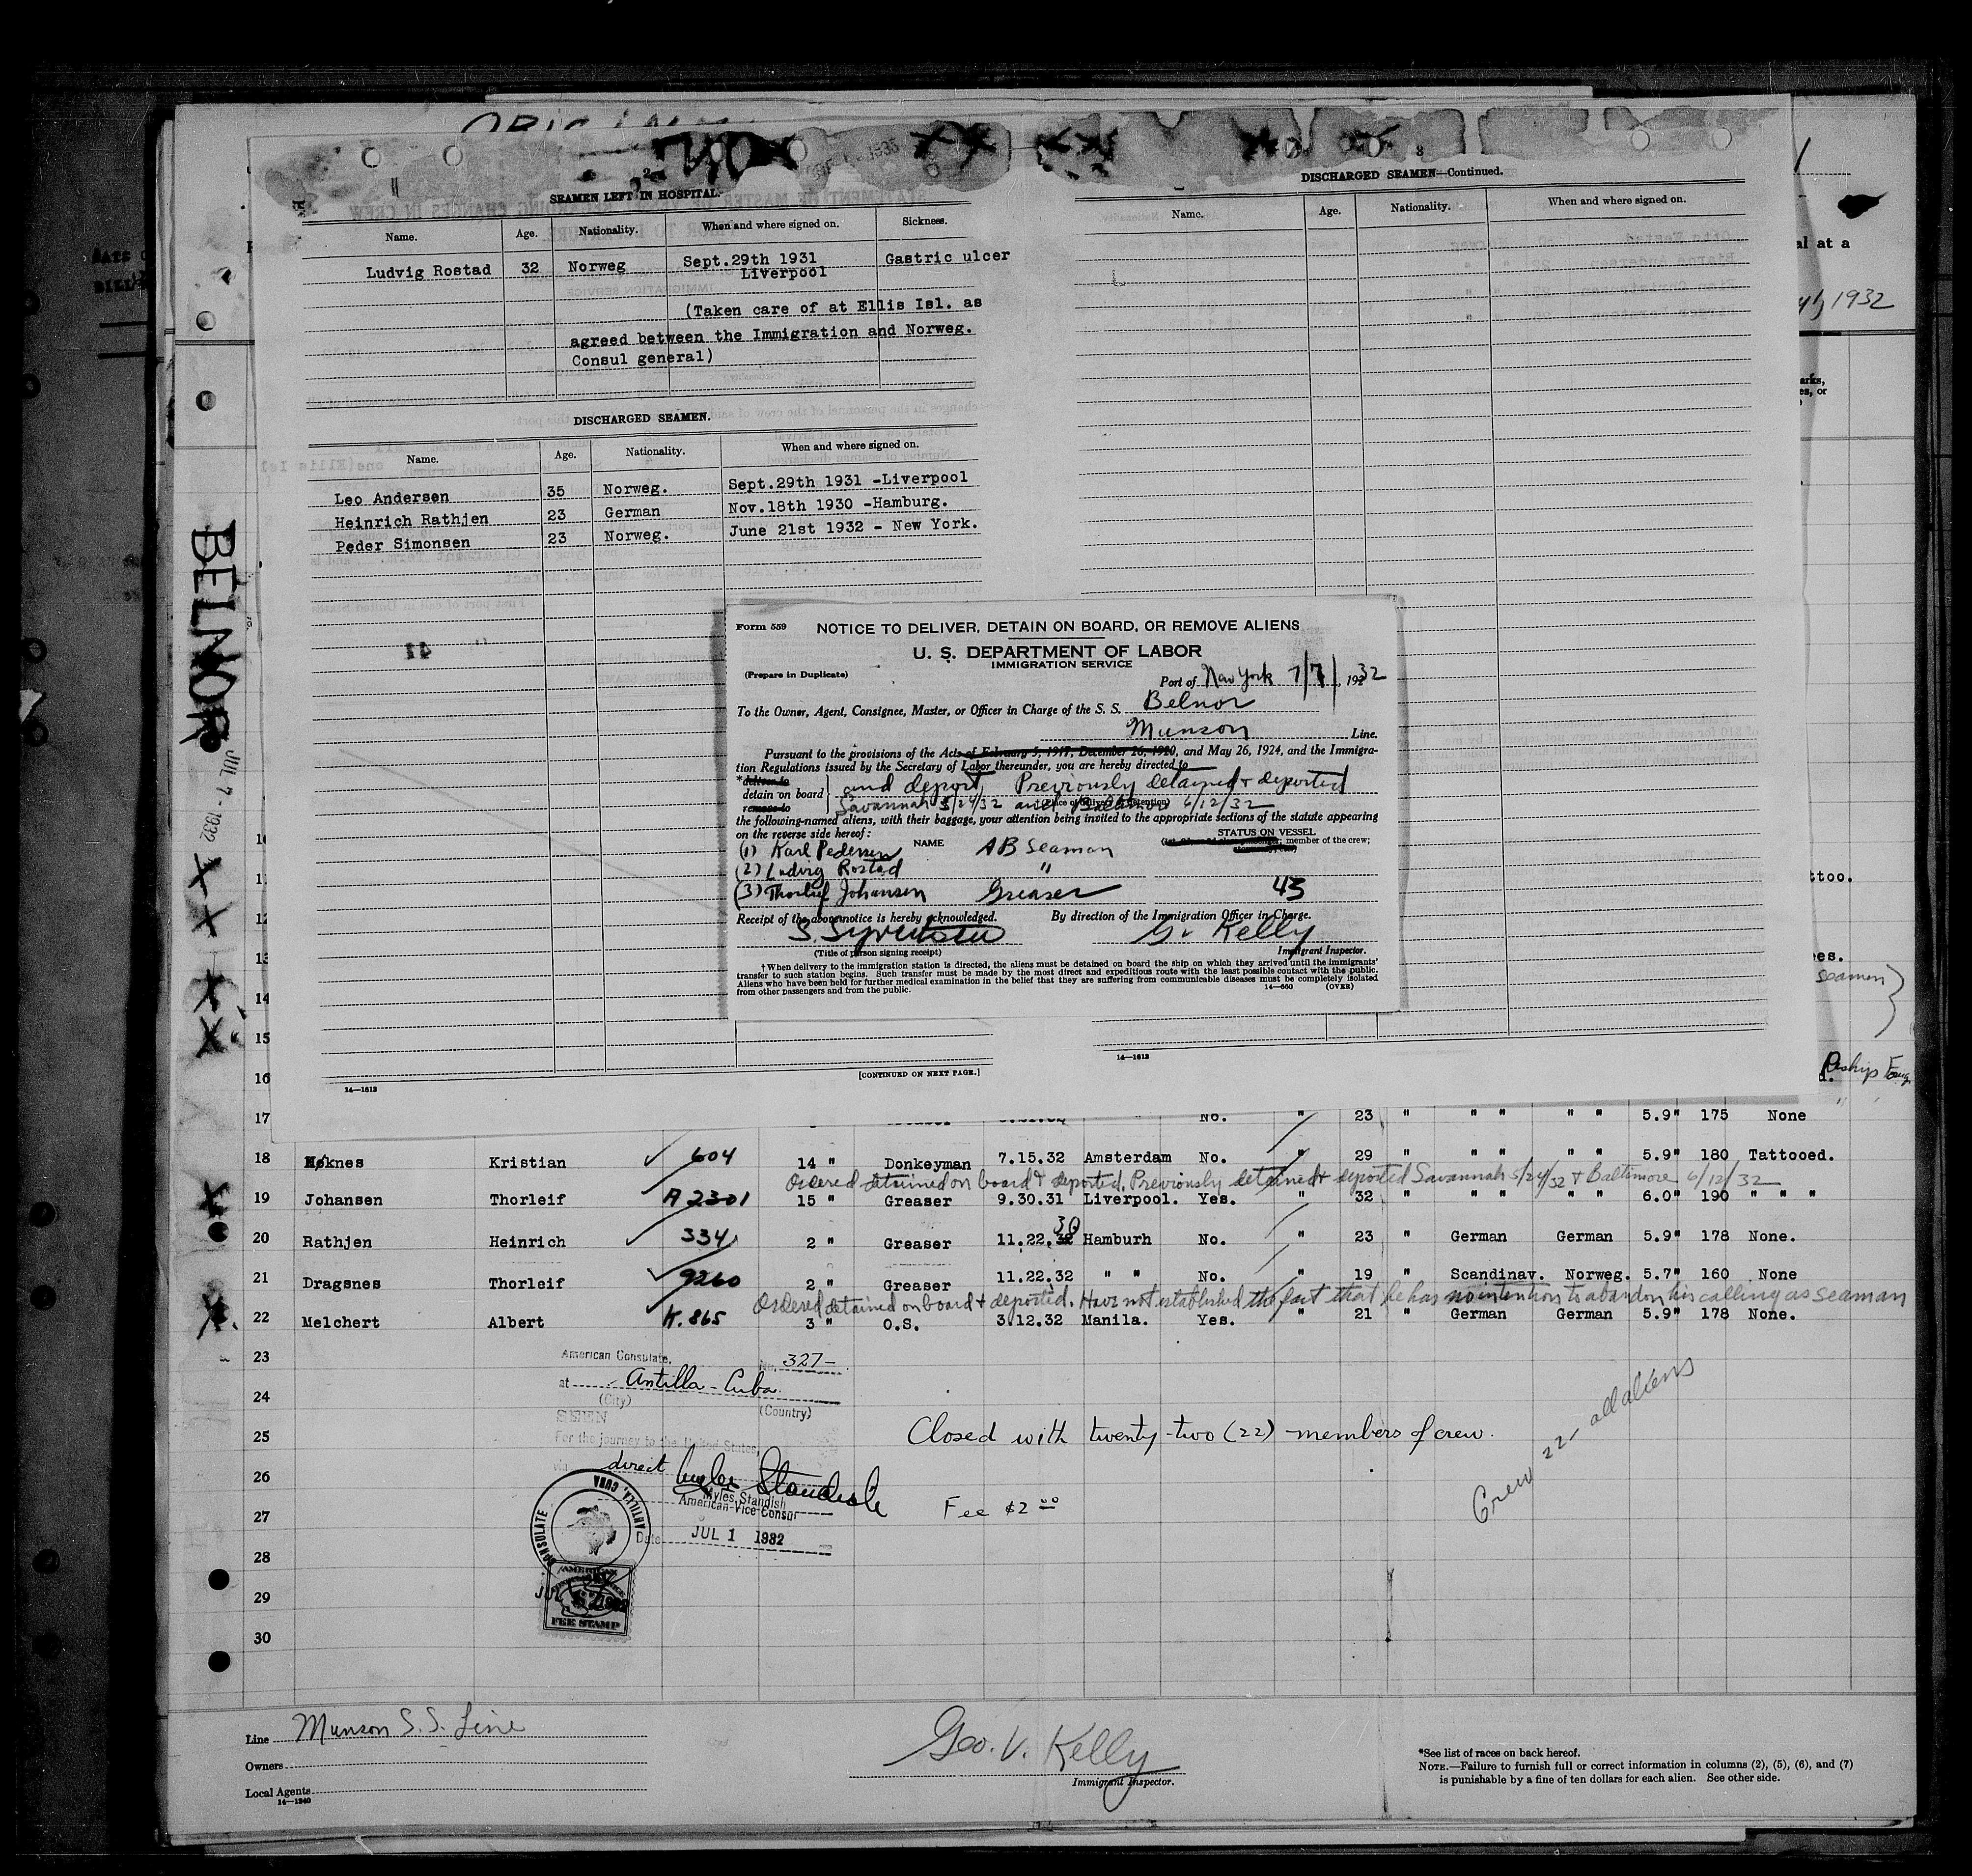 ORIGINAL
2
SEAMEN LEFT IN HOSPITAL.
Name. Age. Nationality. When and where signed on. Sickness.
Ludvig Rostad 32 Norweg Sept.29th 1931 Gastric ulcer
Liverpool
(Taken care of at Ellis Isl. as
agreed between the Immigration and Norweg.
Consul general)
DISCHARGED SEAMEN.
Name. Age. Nationality. When and where signed on.
Leo Andersen 35 Norweg. Sept.29th 1931 -Liverpool
Heinrich Rathjen 23 German Nov.18th 1930 -Hamburg.
Peder Simonsen 23 Norweg. June 21st 1932 - New York.
14—1613
[CONTINUED ON NEXT PAGE.]
3
DISCHARGED SEAMEN—Continued.
Name. Age. Nationality. When and where signed on.
14—1613
al at a
1932
arks,
es, or
ttoo.
es.
seamen
BELNOR
JUL 7 - 1932
Form 559
NOTICE TO DELIVER, DETAIN ON BOARD, OR REMOVE ALIENS
U. S. DEPARTMENT OF LABOR
IMMIGRATION SERVICE
(Prepare in Duplicate)
Port of New York 7/7/, 1932
To the Owner, Agent, Consignee, Master, or Officer in Charge of the S. S. Belnor
Munson Line.
Pursuant to the provisions of the Acts of February 5, 1917, December 26, 1920, and May 26, 1924, and the Immigra-
tion Regulations issued by the Secretary of Labor thereunder, you are hereby directed to
*deliver to
detain on board
remove to
and deport, Previously detained & deported
Savannah 5/24/32 and Baltimore 6/12/32
(Place of delivery or detention)
the following-named aliens, with their baggage, your attention being invited to the appropriate sections of the statute appearing
on the reverse side hereof:
NAME STATUS ON VESSEL
member of the crew;
(1) Karl Pedersen AB Seaman
(2) Ludvig Rostad "
(3) Thorleif Johansen Greaser 43
Receipt of the above notice is hereby acknowledged. By direction of the Immigration Officer in Charge.
G. Kelly
(Title of person signing receipt) Immigrant Inspector.
†When delivery to the immigration station is directed, the aliens must be detained on board the ship on which they arrived until the immigrants'
transfer to such station begins. Such transfer must be made by the most direct and expeditious route with the least possible contact with the public.
Aliens who have been held for further medical examination in the belief that they are suffering from communicable diseases must be completely isolated
from other passengers and from the public. 14—660 (OVER)
11
12
13
14
15
16
17 No. " 23 " " " " " 5.9" 175 None
18 Høknes Kristian 604 14 " Donkeyman 7.15.32 Amsterdam No. " 29 " " " " " 5.9" 180 Tattooed.
Ordered detained on board & deported. Previously detained & deported Savannah 5/24/32 & Baltimore 6/12/32
19 Johansen Thorleif A 2301 15 " Greaser 9.30.31 Liverpool. Yes. " 32 " " " " " 6.0" 190 " " "
20 Rathjen Heinrich 334 2 " Greaser 11.22.30 Hamburh No. " 23 " German German 5.9" 178 None.
21 Dragsnes Thorleif 9260 2 " Greaser 11.22.32 " " No. " 19 " Scandinav. Norweg. 5.7" 160 None
Ordered detained on board & deported. Have not established the fact that he has no intention to abandon his calling as seaman
22 Melchert Albert K.865 3 " O.S. 3.12.32 Manila. Yes. " 21 " German German 5.9" 178 None.
23
24
25
26
27
28
29
30
American Consulate. No. 327-
at Antilla - Cuba
(City) (Country)
SEEN
For the journey to the United States,
via direct
Myles Standish
Myles Standish
American Vice Consul
Date JUL 1 1932
CONSULATE ANTILLA, CUBA
AMERICAN
$2
FEE STAMP
Closed with twenty-two (22) members of crew.
Fee $2 00
Crew 22 - all aliens
Line Munson S.S. Line
Owners
Local Agents
14—1240
Geo. V. Kelly
Immigrant Inspector.
*See list of races on back hereof.
NOTE.—Failure to furnish full or correct information in columns (2), (5), (6), and (7)
is punishable by a fine of ten dollars for each alien. See other side.